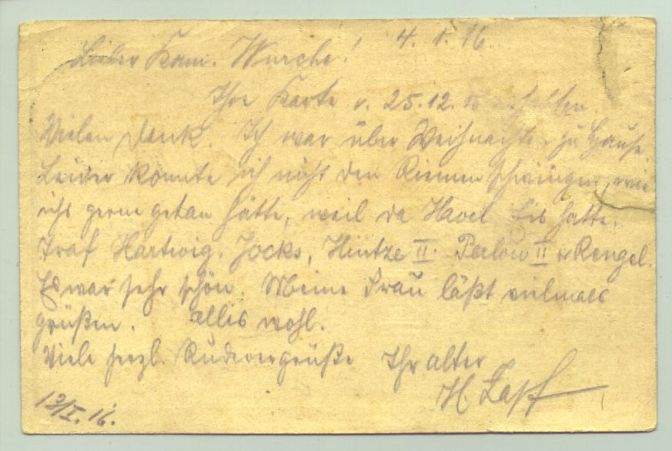 4. 1. 16.
Lieber Kam. Wurche!
Ihre Karte v. 25.12.15 erhalten.
Vielen Dank. Ich war über Weihnachten zu Hause.
Leider konnte ich nicht den Riemen schwingen, wie
ich's gerne getan hätte, weil da Havel Eis hatte.
Traf Hartwig, Jocks, Hintze II. Perlow II u. Rengel.
Es war sehr schön. Meine Frau läßt vielmals
grüßen. Alles wohl.
Viele herzl. Rudergrüße Ihr alter
H.
13/I. 16.